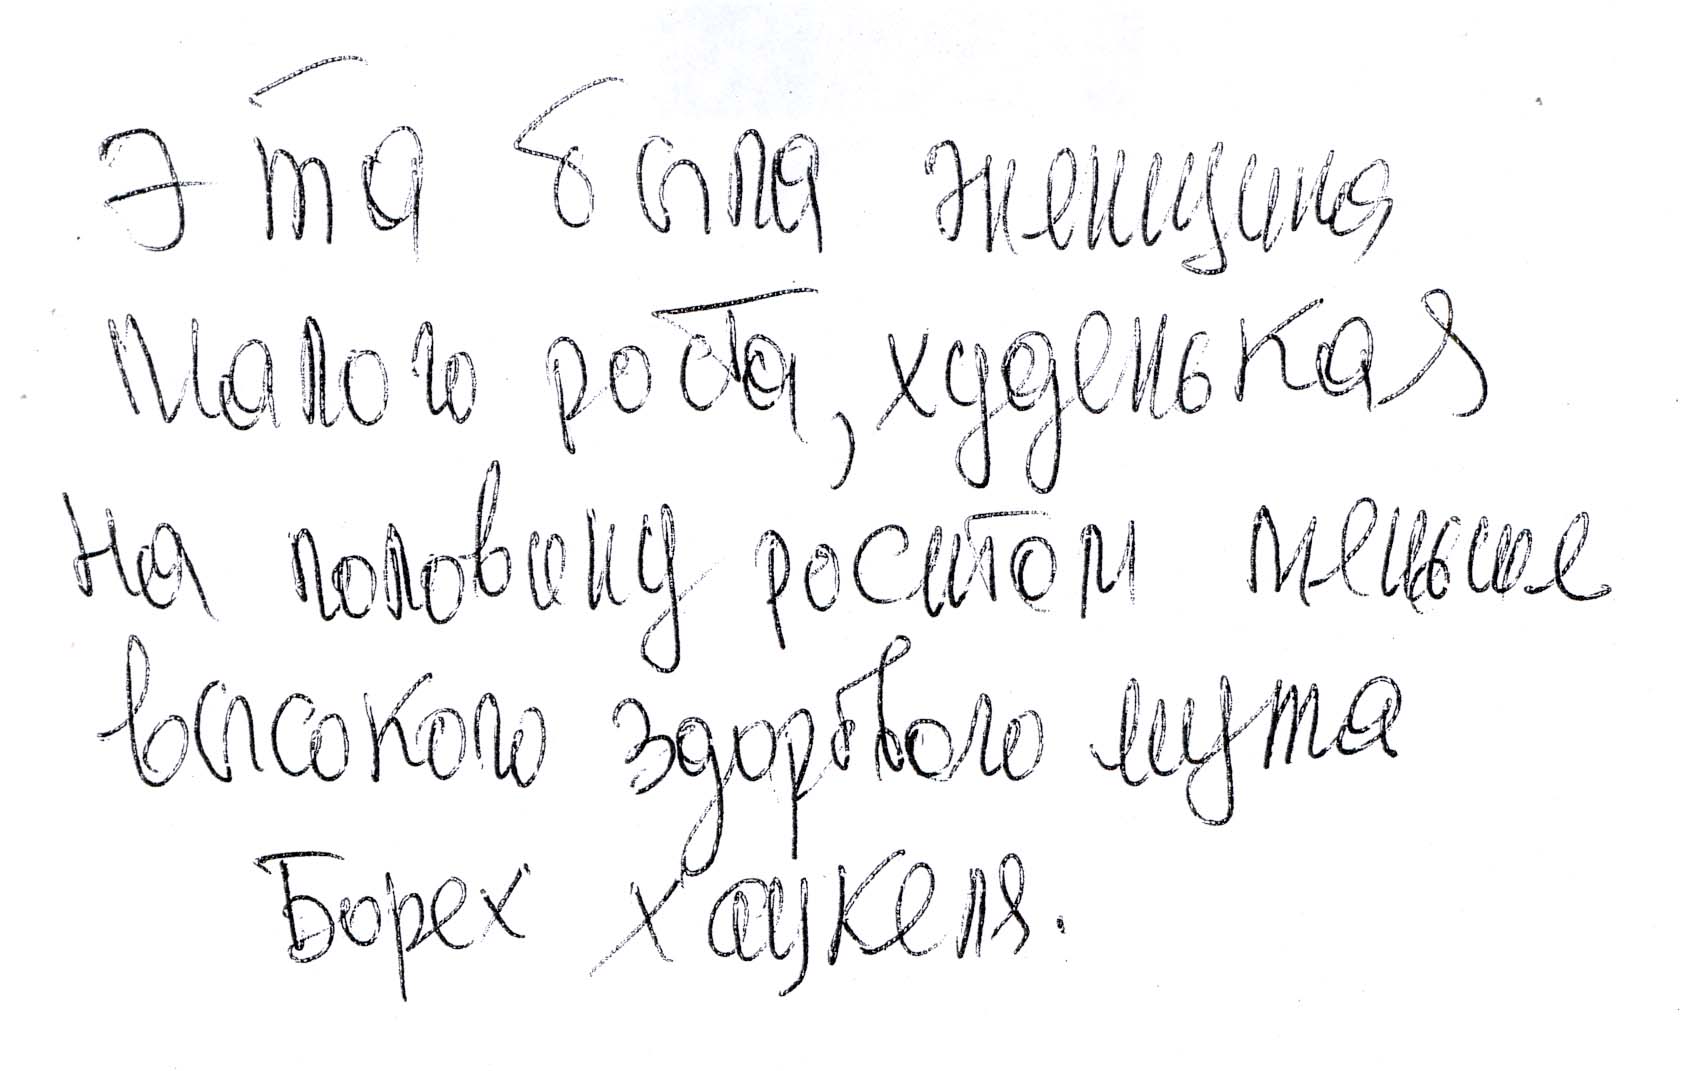 Эта была женщина
малого роста, худенькая
на половину роситом меньше
высокого здорового мужа
Борех Хацкеля.